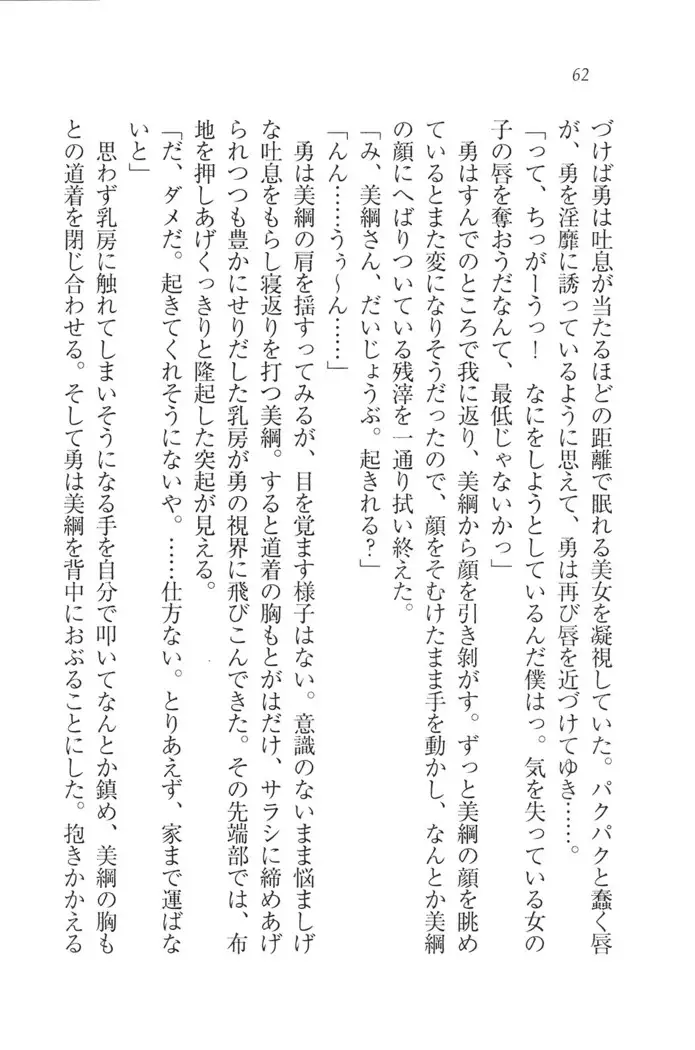 62
づけば勇は吐息が当たるほどの距離で眠れる美女を凝視していた。パクパクと蠢く唇
が、勇を淫靡に誘っているように思えて、勇は再び唇を近づけてゆき……。
「って、ちっがーうっ！　なにをしようとしているんだ僕はっ。気を失っている女の
子の唇を奪おうだなんて、最低じゃないかっ」
　勇はすんでのところで我に返り、美綱から顔を引き剝がす。ずっと美綱の顔を眺め
ているとまた変になりそうだったので、顔をそむけたまま手を動かし、なんとか美綱
の顔にへばりついている残滓を一通り拭い終えた。
「み、美綱さん、だいじょうぶ。起きれる？」
「んん……うぅ～ん……」
　勇は美綱の肩を揺すってみるが、目を覚ます様子はない。意識のないまま悩ましげ
な吐息をもらし寝返りを打つ美綱。すると道着の胸もとがはだけ、サラシに締めあげ
られつつも豊かにせりだした乳房が勇の視界に飛びこんできた。その先端部では、布
地を押しあげくっきりと隆起した突起が見える。
「だ、ダメだ。起きてくれそうにないや。……仕方ない。とりあえず、家まで運ばな
いと」
　思わず乳房に触れてしまいそうになる手を自分で叩いてなんとか鎮め、美綱の胸も
との道着を閉じ合わせる。そして勇は美綱を背中におぶることにした。抱きかかえる